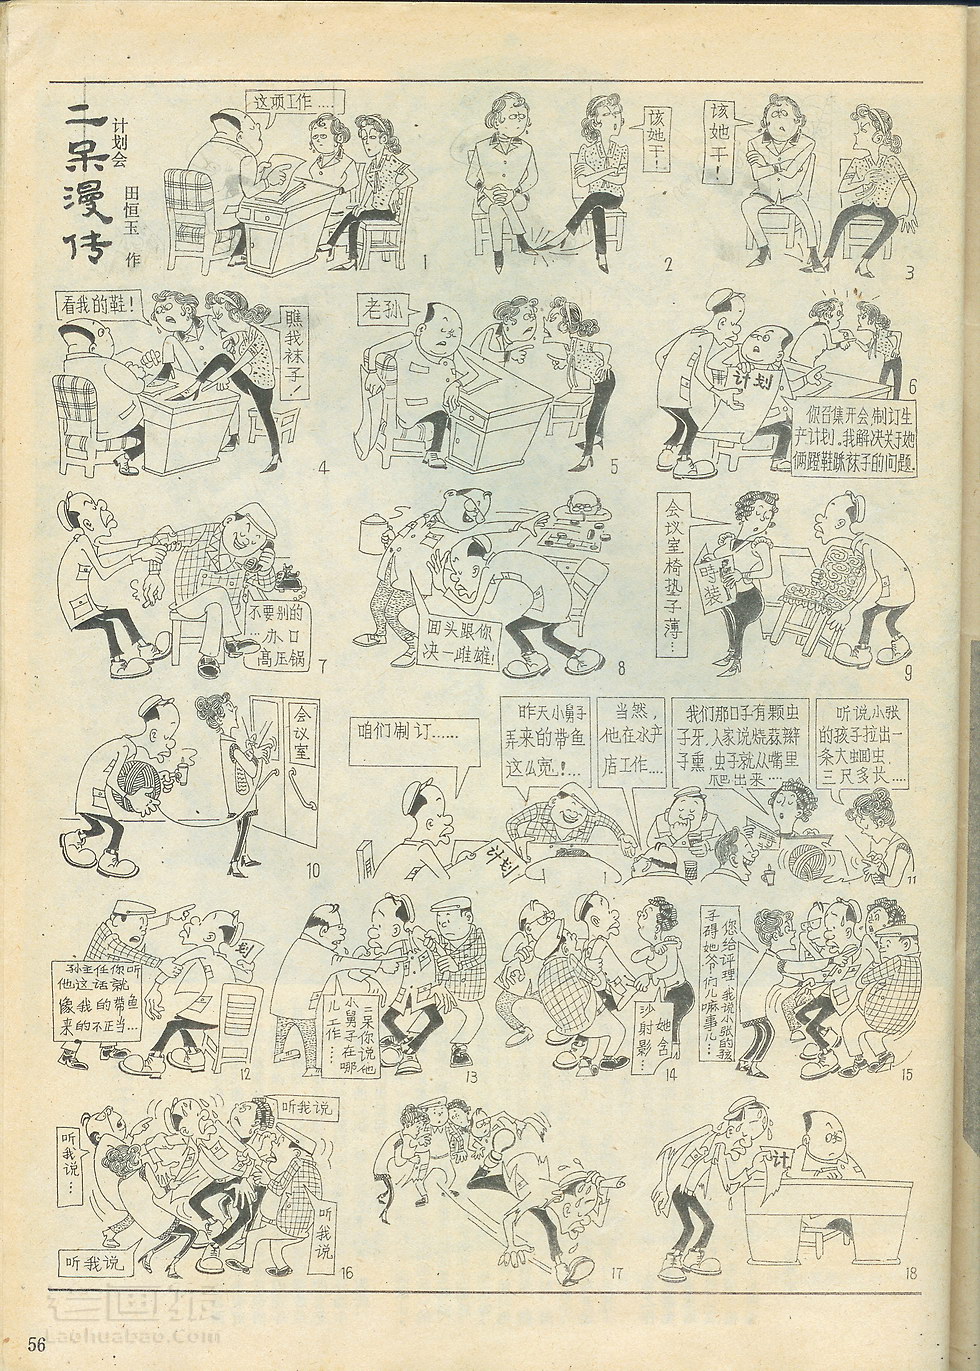 二呆漫传
计划会
田恒玉 作
这项工作....
1
该她干！
2
该她干！
3
看我的鞋！
瞧我袜子！
4
老孙
5
计划
你召集开会,制订生
产计划.我解决关于她
俩蹬鞋踩袜子的问题.
6
不要别的
…办口
高压锅
7
回头跟你
决一雌雄!
8
会议室椅垫子薄…
時装
9
会议室
10
咱们制订……
计划
昨天小舅子
弄来的带鱼
这么宽!...
当然，
他在水产
店工作....
我们那口子有颗虫
子牙,人家说烧蒜辫
子熏,虫子就从嘴里
爬出来....
听说小张
的孩子拉出一
条大蛔虫、
三尺多长....
11
划
孙主任你听
他这话就
像我的带鱼
来的不正当...
12
二呆你说他
小舅子在哪
儿工作....
13
她含
沙射影...
14
您给评理,我说小张的孩
子碍她爷们儿嘛事儿...
15
听我说...
听我说
听我说
听我说
16
17
计
18
老画报
Laohuabao.Com
56